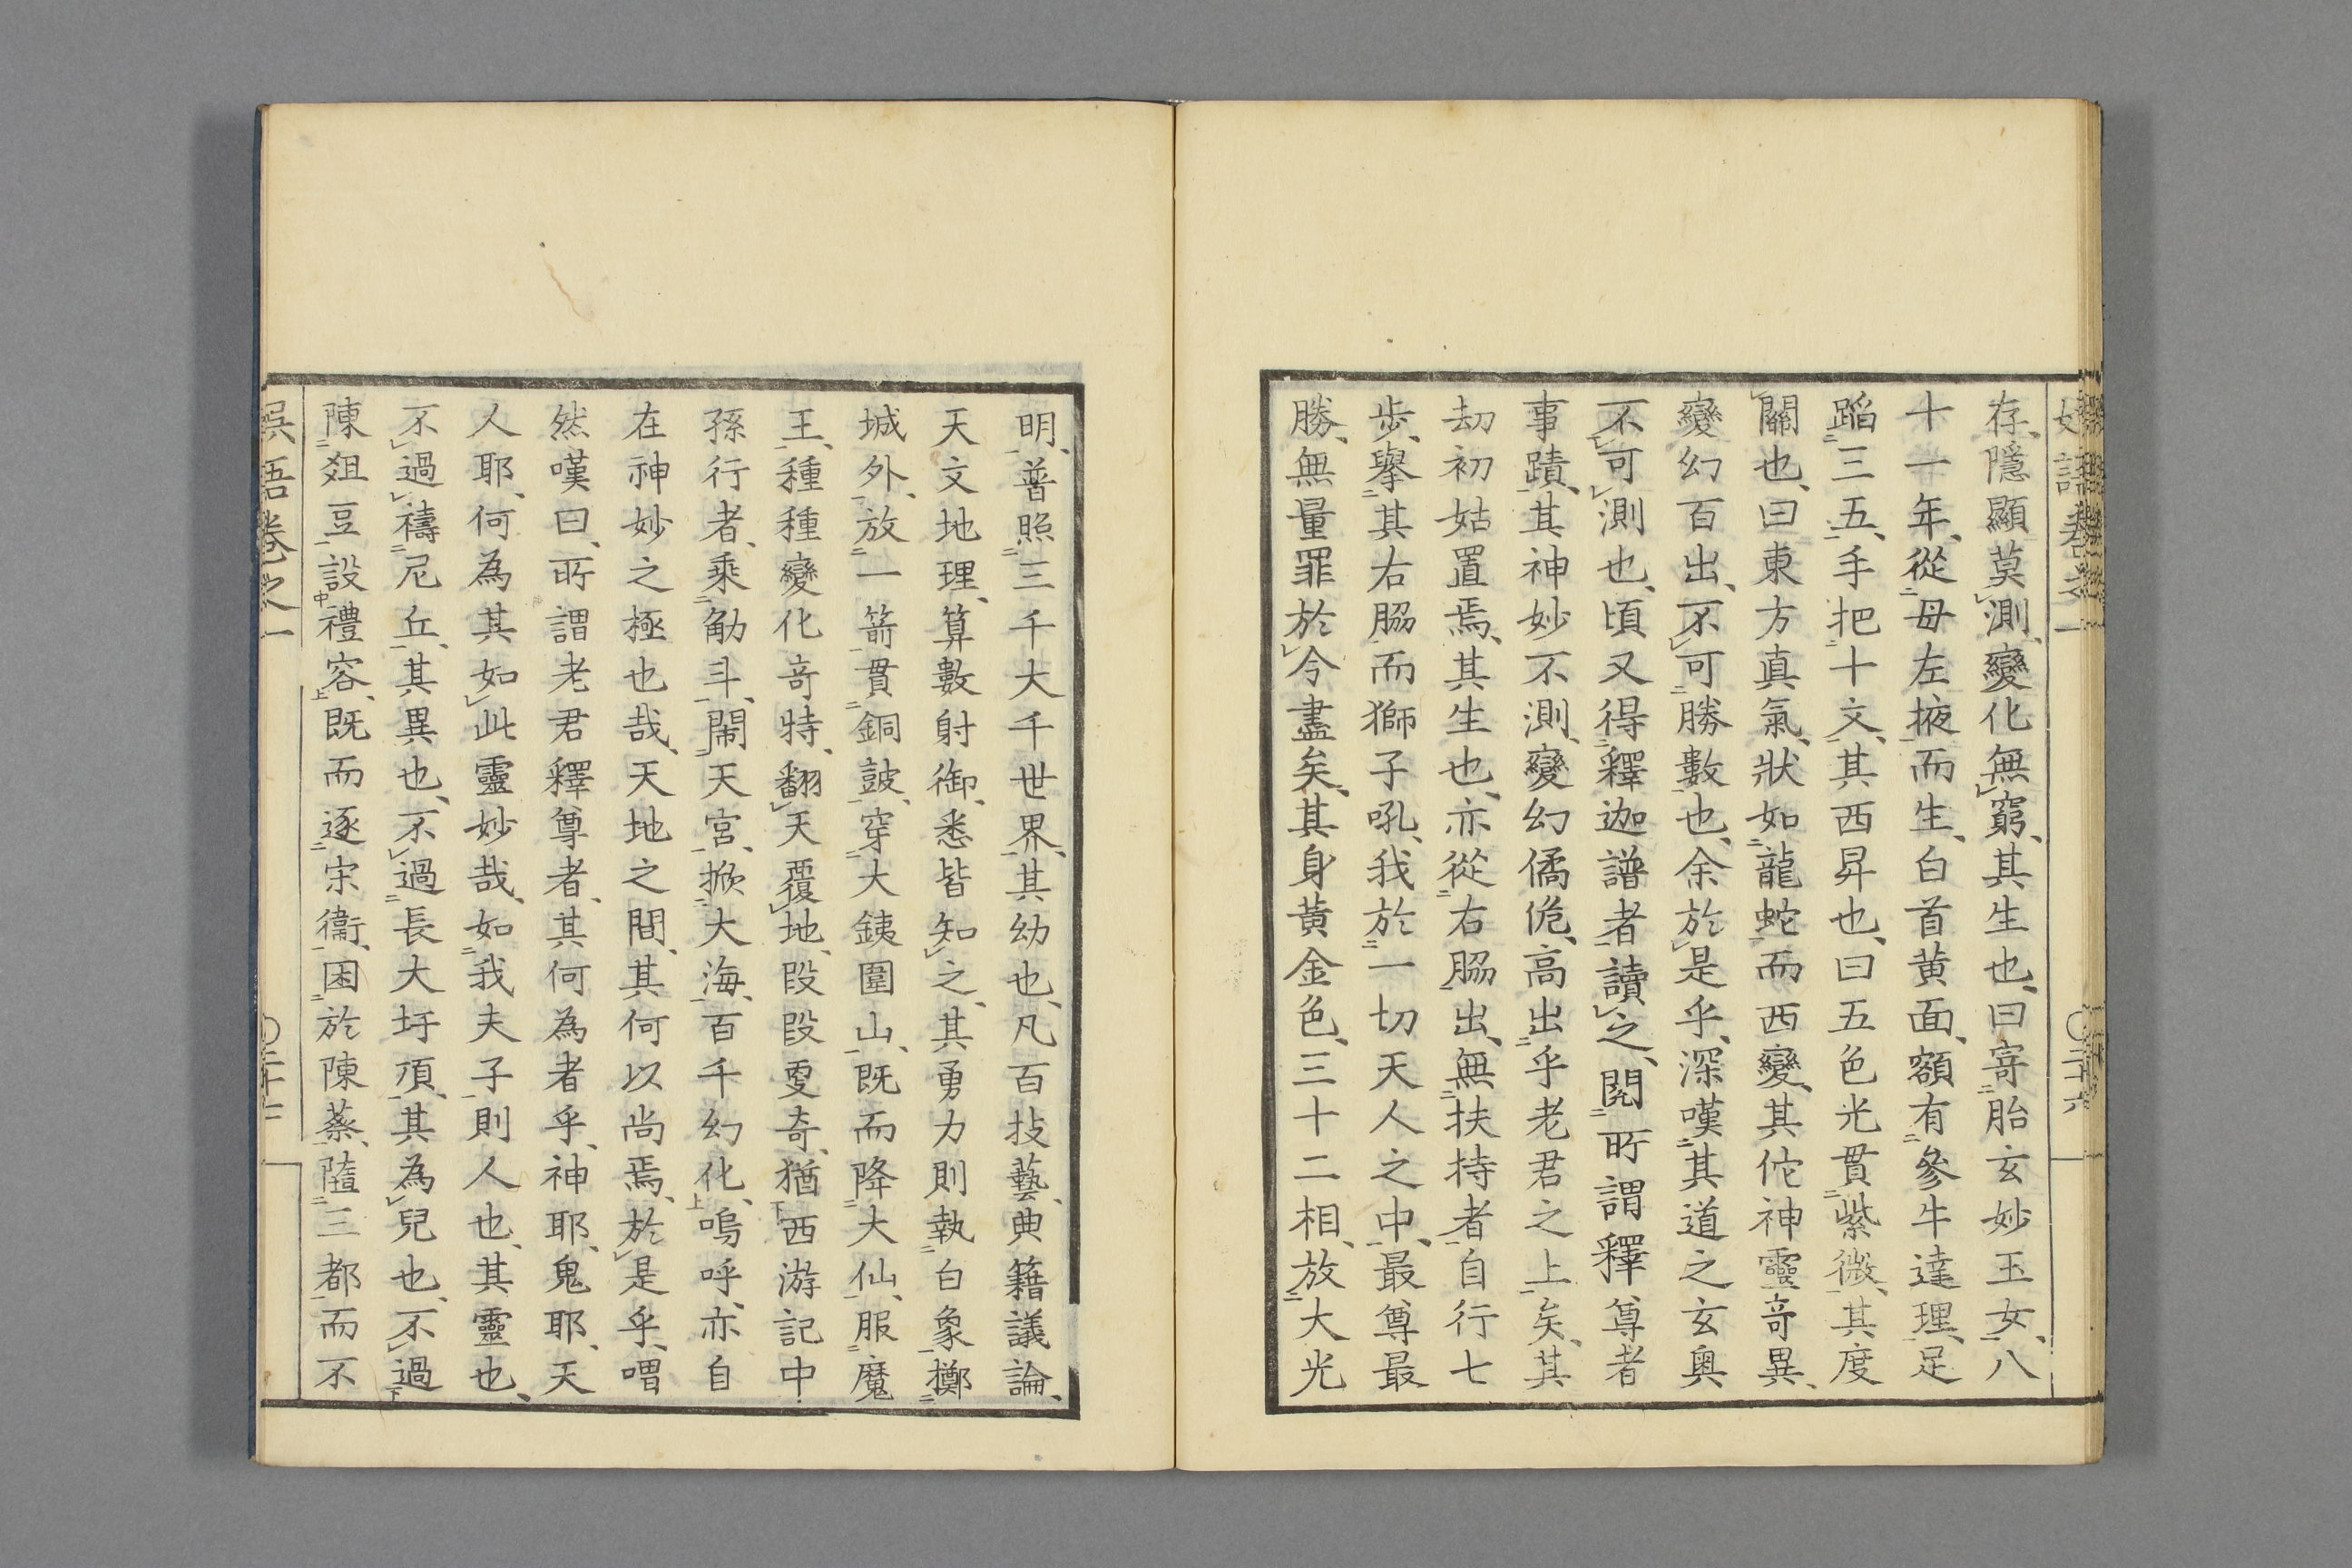 存、隱顯莫測、變化無窮、其生也、曰寄胎玄妙玉女、八
十一年、從母左掖而生、白首黄面、額有參牛達理、足
蹈三五、手把十文、其西昇也、曰五色光貫紫微、其度
關也、曰東方真氣、狀如龍蛇而西變、其佗神靈竒異、
變幻百出、不可勝數也、余於是乎、深嘆其道之玄奥
不可測也、頃又得釋迦譜者讀之、閲所謂釋尊者
事蹟、其神妙不測、變幻僪佹、高出乎老君之上矣、其
劫初姑置焉、其生也、亦從右脇出、無扶持者自行七
歩、擧其右脇而獅子吼、我於一切天人之中、最尊最
勝、無量罪於今盡矣、其身黄金色、三十二相、放大光
明、普照三千大千世界、其幼也、凡百技藝、典籍議論、
天文地理、算數射御、悉皆知之、其勇力則執白象擲
城外、放一箭貫銅鼓、穿大銕圍山、既而降大仙、服魔
王、種種變化竒特、翻天覆地、段段更奇、猶西游記中
孫行者、乘觔斗、閙天宮、掀大海、百千幻化、嗚呼、亦自
在神妙之極也哉、天地之間、其何以尚焉、於是乎、喟
然嘆曰、所謂老君釋尊者、其何為者乎、神耶、鬼耶、天
人耶、何為其如此靈妙哉、如我夫子則人也、其靈也、
不過禱尼丘、其異也、不過長大圩頂、其為兒也、不過
陳爼豆設禮容、既而逐宋衞、困於陳蔡、隳三都而不
卷之一